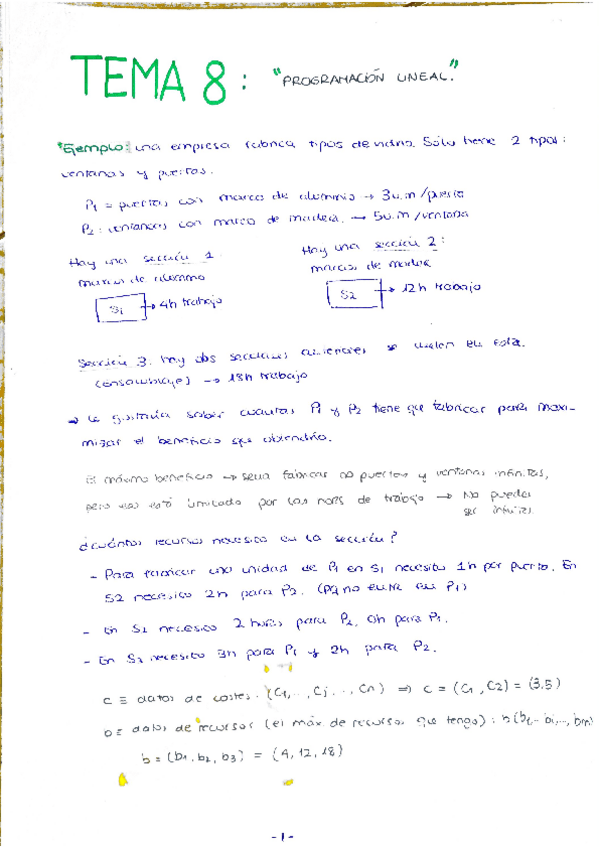 TEMA 8: "PROGRAMACIÓN LINEAL."
*Ejemplo: una empresa fabrica tipos de vidrio. Sólo tiene 2 tipos:
ventanas y puertas.
P1 = puertas con marco de aluminio → 3u.m/puerta
P2: ventanas con marco de madera. → 5u.m/ventana
Hay una sección 1
marcos de aluminio
S1 → 4h trabajo
Hay una sección 2:
marcos de madera
S2 → 12h trabajo
Sección 3. hay dos secciones anteriores se unen en esta.
(ensamblaje) → 18h trabajo
→ Le gustaría saber cuantas P1 y P2 tiene que fabricar para maxi-
mizar el beneficio que obtendría.
El máximo beneficio → sería fabricar no puertas y ventanas infinitas,
pero esto está limitado por las horas de trabajo → No pueden
ser infinitas.
¿cuántos recursos necesito en la sección?
- Para fabricar una unidad de P1 en S1 necesito 1h por puerta. En
S2 necesito 2h para P2. (P2 no entra en P1)
- En S2 necesito 2 horas para P2. 0h para P1.
- En S3 necesito 3h para P1 y 2h para P2.
c ≡ datos de costes. (C1, .., Cj .., Cn) ⇒ c = (C1, C2) = (3,5)
b ≡ datos de recursos (el máx. de recursos que tengo): b(b1.. bi,.., bm)
b = (b1, b2, b3) = (4, 12, 18)
- 1 -